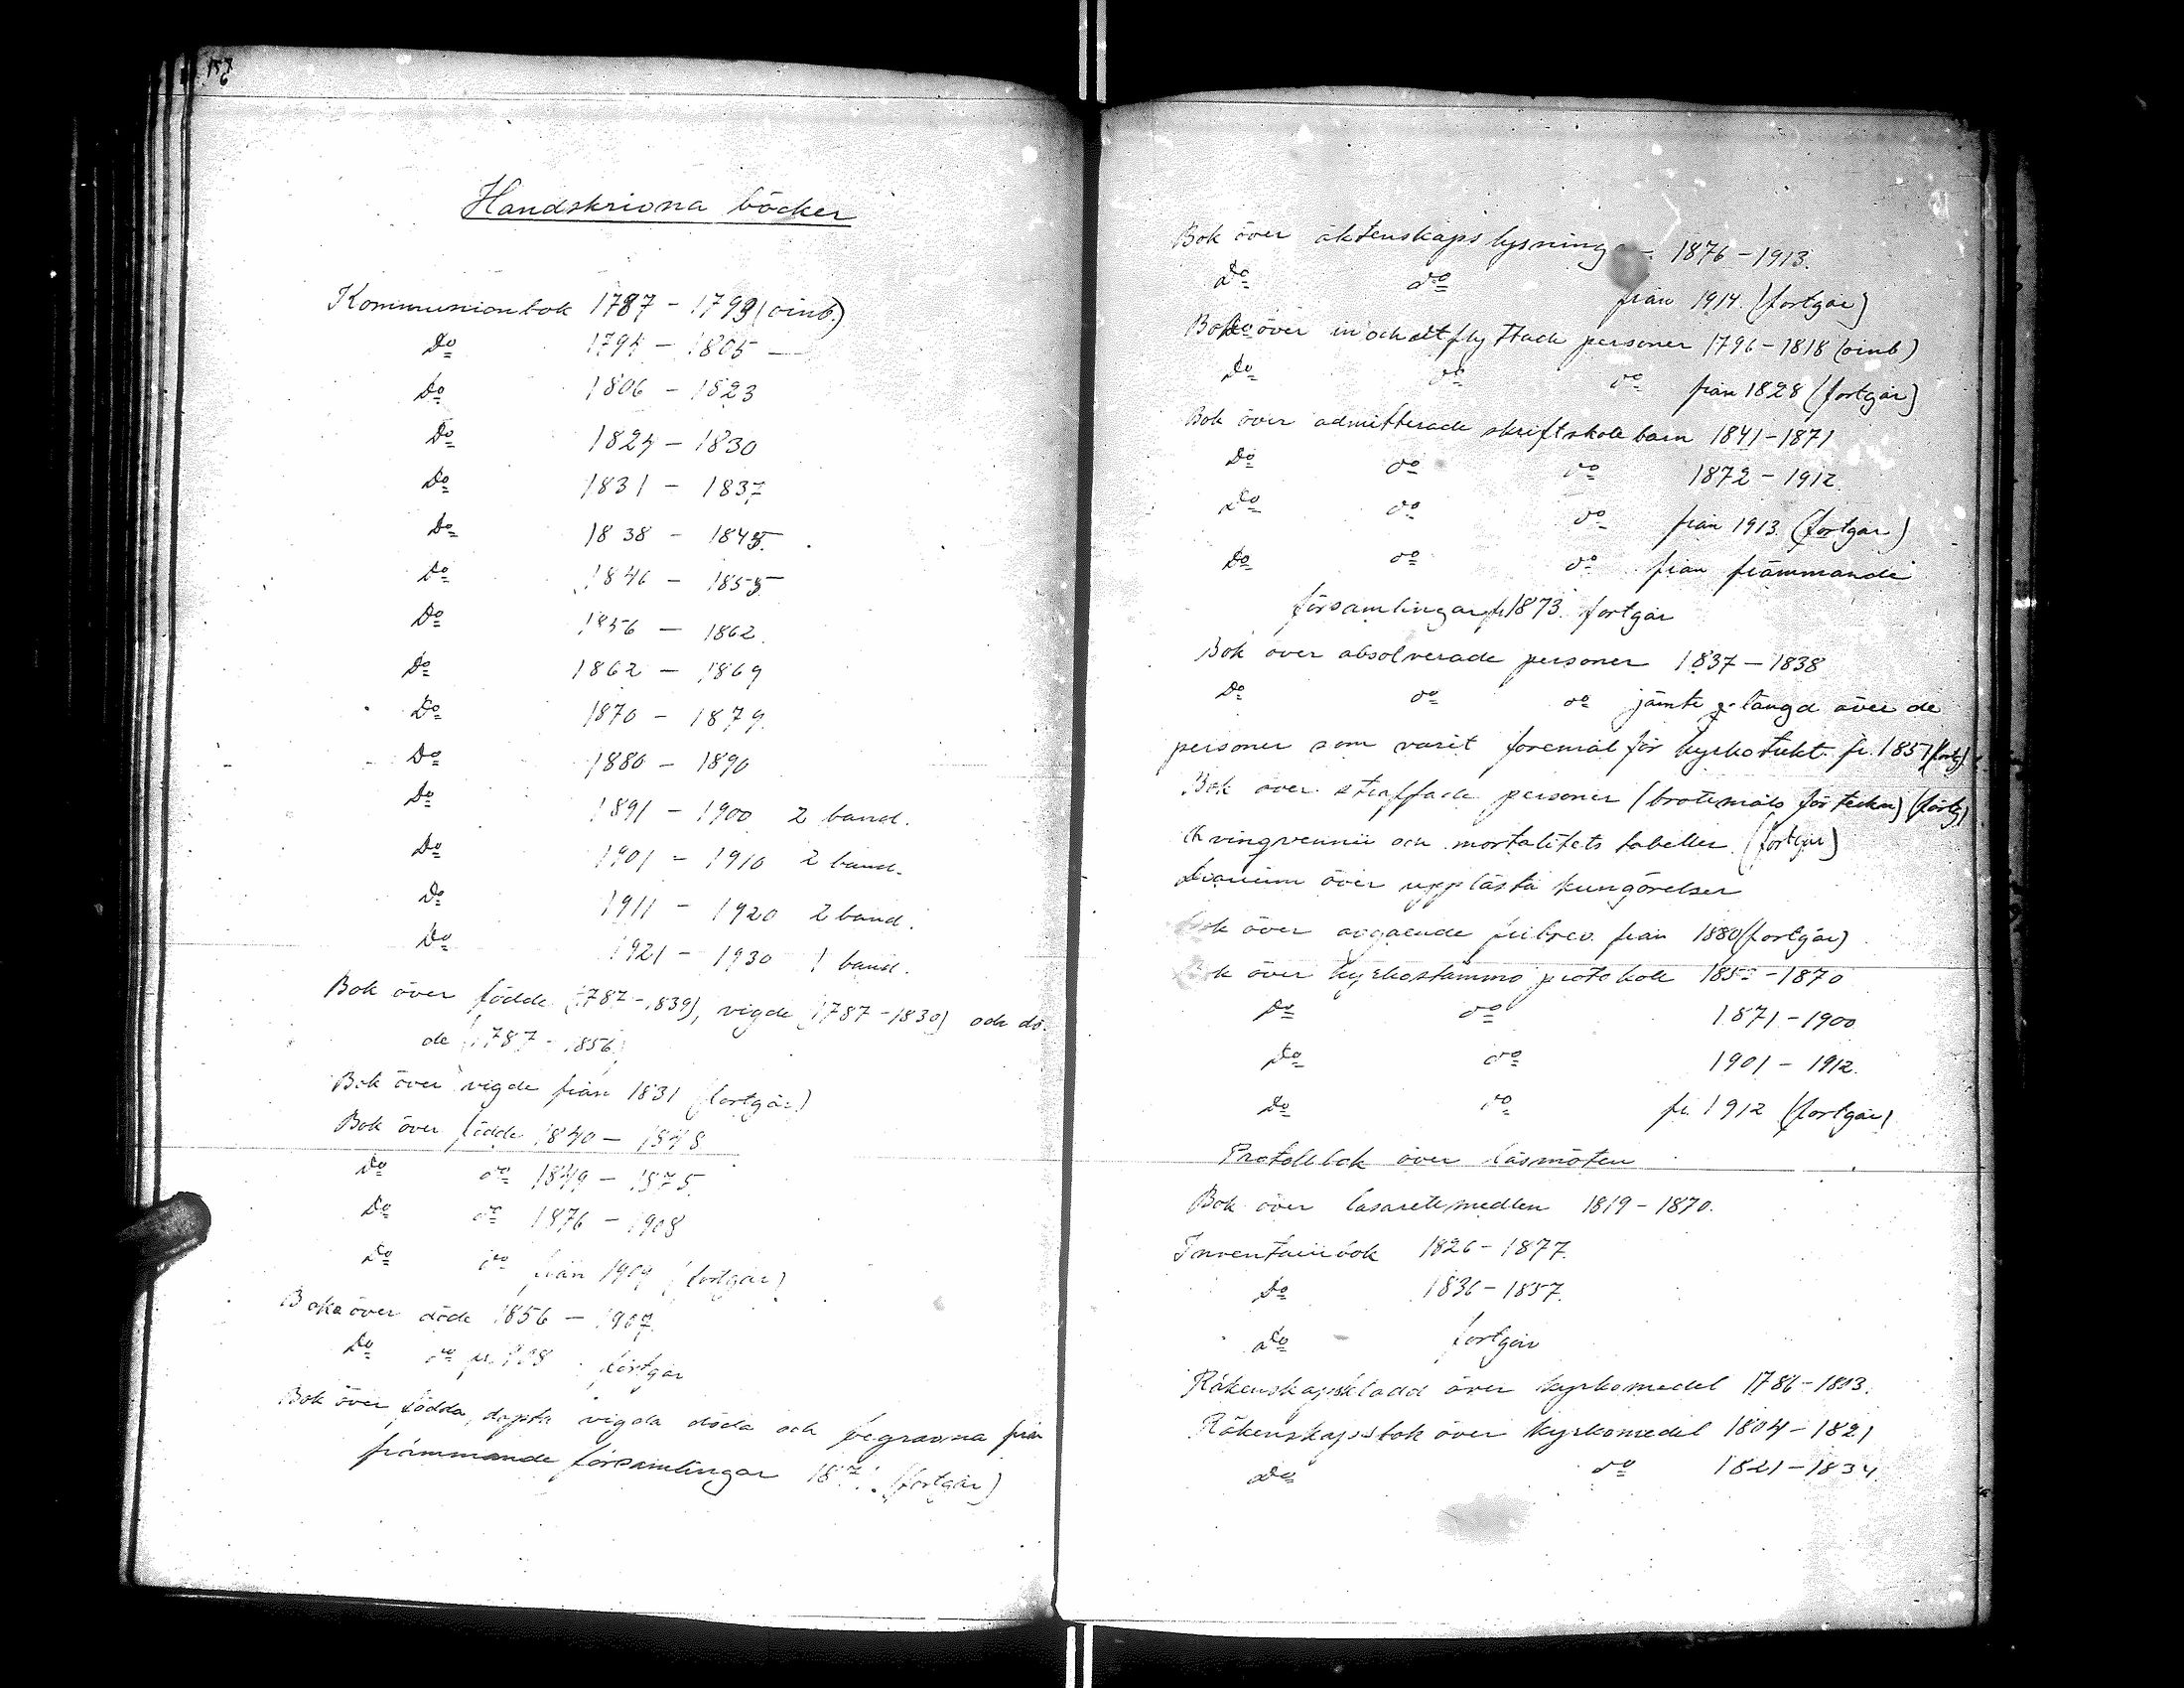 157
6
Handskrivna böcker
Kommunionbok 1787 - 1793 (oinb.)
Do 1794 - 1805 -
Do 1806 - 1823
Do 1824 - 1830
Do 1831 - 1837
Do 1838 - 1845.
Do 1846 - 1855
Do 1856 - 1862.
Do 1862 - 1869
Do 1870 - 1879.
Do 1880 - 1890
Do 1891 - 1900 2 band.
Do 1901 - 1910 2 band.
Do 1911 - 1920 2 band.
Do 1921 - 1930 1 band.
Bok över födde (1787-1839), vigde (1787-1830) och dö-
de (1787 - 1856)
Bok över vigde från 1831 (fortgår)
Bok över födde 1840 - 1848
Do do 1849 - 1875.
Do do 1876 - 1908
Do do från 1909 (fortgår)
Boka över döde 1856 - 1907.
Do do fr. 1908 fortgår
Bok över födda, döpta vigda döda och begravna från
främmande församlingar (fortgår)
Bok över äktenskapslysningar 1876 - 1913.
Do do från 1914. (fortgår)
Bok över in och utflyttade personer 1796 - 1818 (oinb)
Do do do från 1828 (fortgår)
Bok över admitterade skriftskolebarn 1841-1871
Do do do 1872 - 1912.
Do do do från 1913 (fortgår)
Do do do från främmande
församlingar fr 1873. fortgår
Bok över absolverade personer 1837 - 1838
Do do do jämte längd över de
personer som varit föremål för kyrkotukt fr. 1851 (fortg)
Bok över straffade personer (brotemåls förteckn) (fortg)
och mortalitets tabeller (fortgår)
Diarium över upplästa kungörelser
Bok över avgående fribrev från 1880 (fortgår)
Bok över kyrkostämmo protokoll - 1870
Do do 1871 - 1900
Do do 1901 - 1912.
Do do fr. 1912 (fortgår)
Protollbok över läsmöten
Bok över lasarettsmedlen 1819 - 1870.
Inventariibok 1826 - 1877.
Do 1836 - 1857.
Do fortgår
Räkenskapskladd över kyrkomedel 1786 - 1803.
Räkenskapsbok över kyrkomedel 1804 - 1821
Do do 1821 - 1834.